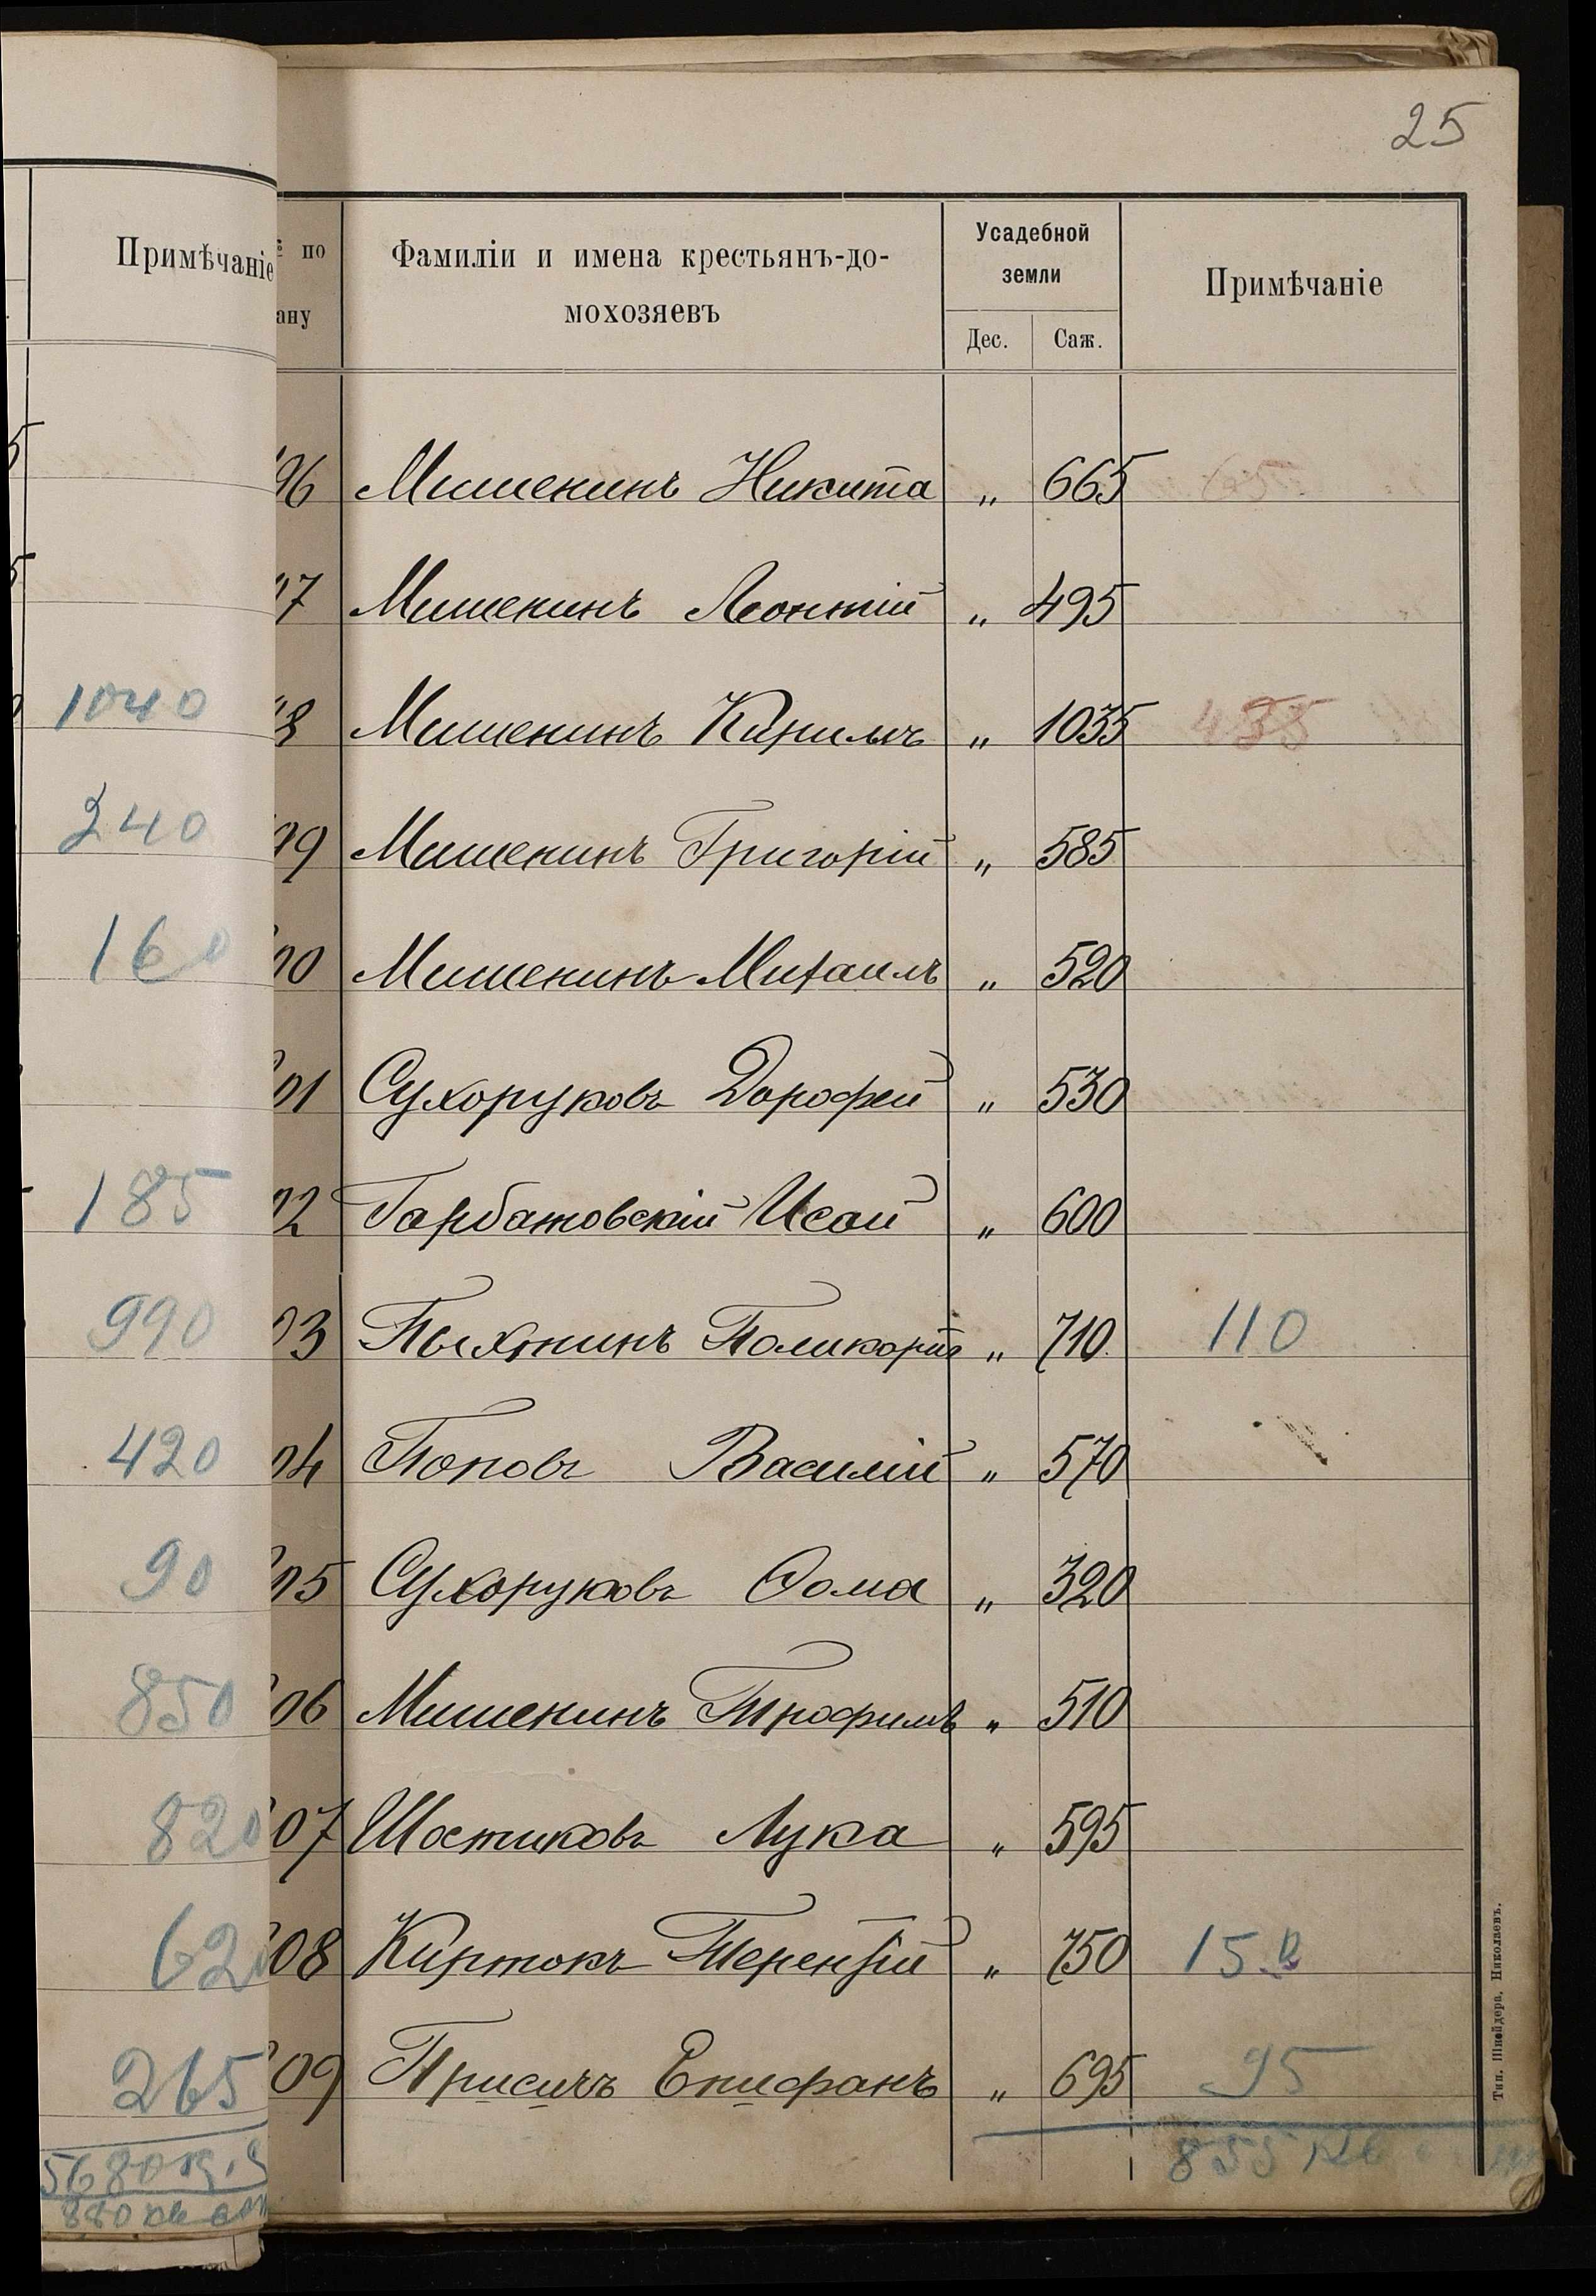 25
Примѣчаніе
по
ану
Фамиліи и имена крестьянъ-до-
мохозяевъ
Усадебной
земли
Дес. Саж.
Примѣчаніе
96 Мишенинъ Никита „ 665 65
97 Мишенинъ Леонтій „ 495
1040
98 Мишенинъ Кирилъ „ 1035 435
240
99 Мишенинъ Григорій „ 585
160
00 Мишенинъ Михаилъ „ 520
01 Сухоруковъ Дорофей „ 530
185
02 Гарбатовскій Исай „ 600
990
03 Пыхтинъ Поликарпъ „ 710. 110
420
04 Поповъ Василій „ 570
90
05 Сухоруковъ Ѳома „ 320
850
06 Мишенинъ Трофимъ „ 510
820
07 Шостиковъ Лука „ 595
620
08 Киртокъ Терентій „ 750 150
265
09 Присичъ Епифанъ „ 695 95
5680 кв. с
855 кв
880 кв саж
Тип. Шнейдера, Николаевъ.